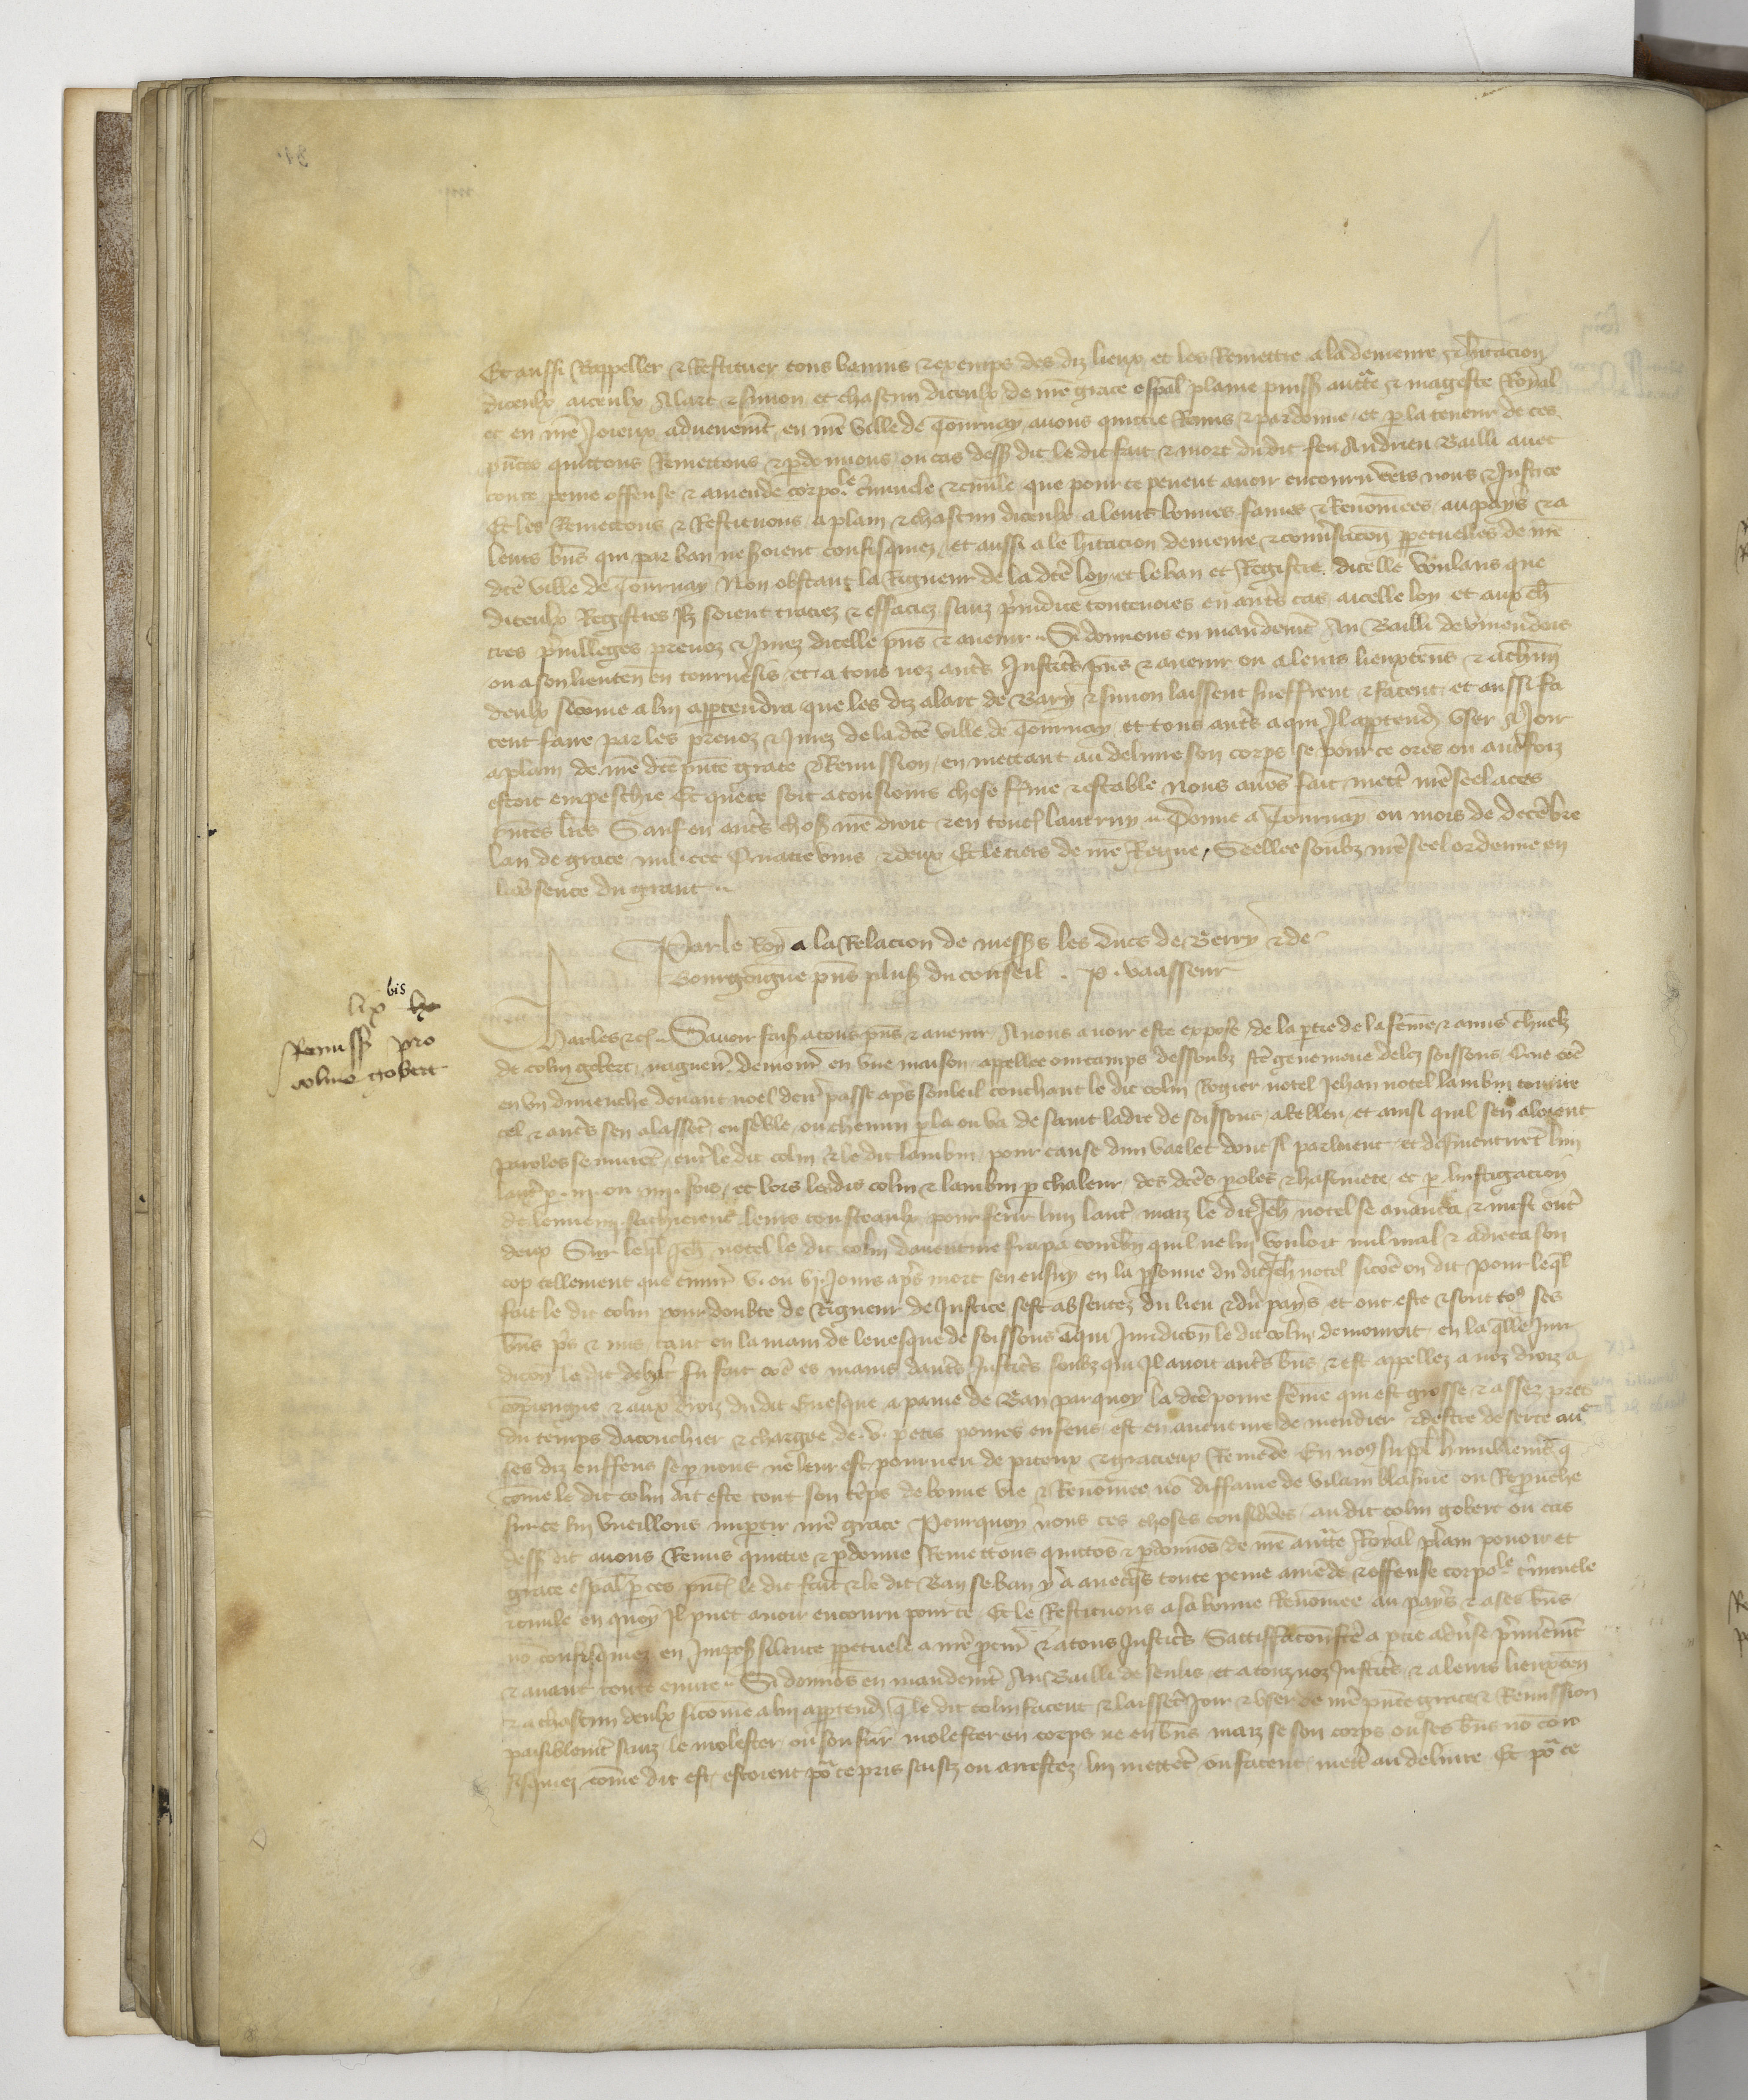 Et aussi Rappeller & Restituer tous bannis & exemps des diz lieux et les Remettre a la demeure & h̄itacion
diceulx aiceulx Alart & simon et chascun diceulx de nr̄e grace esp̄al plaine puiss̄ auct̄te & mageste Royal
et en nr̄e Joieux aduenem̄t en nr̄e ville de Tournay auons quittie Remis & pardonne et p̄ la teneur de ces
pn̄tes quittons Remettons & p̄donnons ou cas dess̄ dit le dit fait & mort dudit feu Andrieu Bailli auec
toute peine offense & amende corpor̄le c̄minele & ciuile que pour ce peuent auoir encouru v̄ers nous & Justice
Et les Remettons & Restituons a plain & chascun diceulx a leurs bonnes fames & Renom̄ees au pays & a
leurs bn̄s qui par ban ne soient confisquiez et aussi a le h̄itacion demeure & conūsacōn p̄petuelles de nr̄e
dc̄e ville de Tournay Non obstant la Rigueur de la dc̄e loy et le ban et Registre dicelle voulans que
diceulx Registres Ilz soient traciez & effaciez sanz p̄iudice toutevoies en aut̄s cas aicelle loy et aux ch̄
tres p̄uilleges preuoz & Jurez dicelle pn̄s & auenir Si donnons en mandem̄t Au Bailli de v̄mendois
ou a son lieuten̄ en tournesis et a tous noz aut̄s Justic̄rs pn̄s & auenir ou a leurs lieuxten̄s & a ch̄un
deulx sicom̄e a lui app̄tendra que les diz alart de Bary & simon laissent sueffrent & facent et aussi fa
cent faire par les preuoz & Jurez de la dc̄e ville de Tournay et tous aut̄s a qui Il app̄tend̄ vser & Joir
a plain de nr̄e dc̄e pn̄te grace & Remission en mettant au deliure son corps se pour ce ores ou aut̄foiz
estoit empeschie Et que ce soit a tousiours chose ferme & estable Nous auōs fait mett̄r nr̄e seel a ces
pn̄tes lr̄es Sauf en aut̄s choses nr̄e droit & en toutes lautruy Donne a Tournay ou mois de decēbre
lan de grace mil ccc Quatre vins & deux Et le tiers de nr̄e Regne Seellee soubz nr̄e seel ordenne en
labsence du grant
Par le Roy a la Relacion de mess̄rs les Ducs de Berry & de
Bourgoingne pn̄s pluss̄ du conseil . P. vaasseur
lix bis
Remiss̄ pro
colino gobert
Charles &c Sauoir faiss̄ a tous pn̄s & auenir A nous auoir este expose de la p̄tie de la fēme & amis ch̄nelz
de colin gobert naguer̄s demour̄ en vne maison appellee
en vn dimenche deuant noel dern̄ passe ap̄s souleil couchant le dit colin Rogier notel Jehan notel lambin
& aut̄s sen alass̄ent ensēble ou chemin p̄ la ou va de saint ladre de soissons et ainsi quil sen aloient
paroles se murent entr̄e le dit colin & le dit lambin pour cause dun varlet dont Il parloient et desmentirēt lun
laut̄re p̄ iij ou iiij fois et lors lesdis colin & lambin p̄ chaleur des dc̄es paroles & hastiuete et p̄ linstigacion
de lennemi sachierent leurs cousteaulx pour ferir lun laut̄re maiz le dit Jeh̄ notel se auanca & mist ent̄r
deux Sur leq̄l Jeh̄ notel le dit colin dauenture frapa combn̄ quil ne lui vouloit nul mal & adreca son
cop tellement que enuir̄ v ou vj Jours ap̄s mort sen ensuy en la p̄sonne du dit Jeh̄ notel sicōe on dit Pour leq̄l
fait le dit colin pour doubte de Rigueur de Justice sest absentez du lieu & du pays et ont este & sont toꝰ ses
bn̄s p̄s & mis tant en la main de leuesque de soissons en qui Juridicōn le dit colin demouroit en la q̄lle Juri
dicōn le dit debat fu fait cōe es mains daut̄s Justic̄rs soubz qui Il auoit aut̄s bn̄s & est appellez a noz droiz a
cōpiengne & aux droiz dudit Euesque a paine de Ban par quoy la dc̄e poure fēme qui est grosse & assez pres
du temps dacouchier & chargee de v petis poures enfens est en auenture de mendier & destre deserte auec̄
ses diz enffens se p̄ nous ne leur est pourueu de piteux & gracieux Remede En noꝰ suppl̄ humblem̄t q̄
cōme le dit colin ait este tout son tēps de bonne vie & Renommee nō diffame de vilain blasme ou Reprouche
sur ce lui vueillons imp̄tir nr̄e grace Pourquoy nous ces choses considerees au dit colin gobert ou cas
dess̄ dit auons Remis quittie & p̄donne Remettons quittōs & p̄donnōs de nr̄e auct̄te Royal plain pouoir et
grace esp̄al p̄ ces pn̄tes le dit fait & le dit Ban se ban y a auecq̄s toute peine amēde & offense corpor̄le c̄minele
& ciuile en quoy Il puet auoir encouru pour ce Et le Restituons a sa bonne Renommee au pays & a ses bn̄s
nō confisquiez en Imposant silence p̄petuele a nr̄e p̄cur̄ & a tous Justic̄rs Satiffacōn fc̄e a p̄tie adūse p̄mierem̄t
& auant toute euure Si donnōs en mandem̄t Au Bailli de senlis et a touz noz Justic̄rs & a leurs lieuxten̄
& a chascun deulx sicom̄e a lui app̄tend̄ q̄ le dit colin facent & laissent Joir & vser de nr̄e pn̄te grace & Remission
paisiblem̄t sanz le molester ou souffrir molester en corps ne en bn̄s maiz se son corps ou ses bn̄s nō con
fisquiez cōme dit est estoient po᷑ ce pris saisiz ou arrestez lui mettēt ou facent mett̄r au deliure Et po᷑ ce